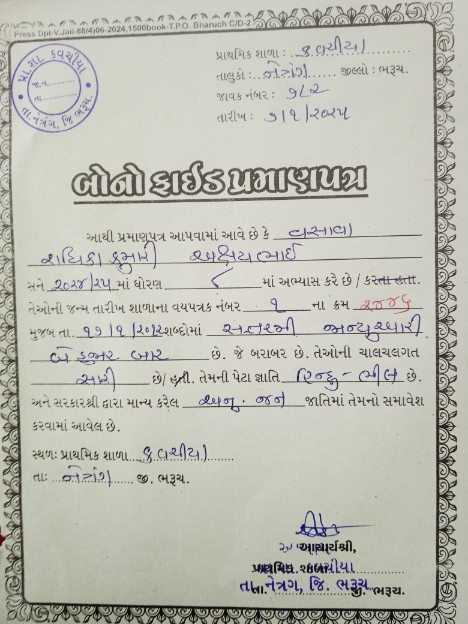 Press Dpt-V.Jail-88(4)06-2024,1500book-T.P.O. Bharuch C/D-2
પ્રા.શા. કવચીયા
જા.નં.
તા.
તા.નેત્રંગ, જિ. ભરૂચ.
પ્રાથમિક શાળા : કવચીયા
તાલુકો : નેત્રંગ જીલ્લો : ભરૂચ.
જાવક નંબર : ૭૮૨
તારીખ : ૭/૧/૨૦૨૫
બોનો ફાઈડ પ્રમાણપત્ર
આથી પ્રમાણપત્ર આપવામાં આવે છે કે વસાવા
રાધિકા કુમારી અક્ષયભાઈ
સને ૨૦૨૪/૨૫ માં ધોરણ ૮ માં અભ્યાસ કરે છે / કરતા હતા.
તેઓની જન્મ તારીખ શાળાના વયપત્રક નંબર ૧ ના ક્રમ ૨૪૪૬
મુજબ તા. ૧૭/૧/૨૦૧૨ શબ્દોમાં સત્તરમી જાન્યુઆરી
બે હજાર બાર છે. જે બરાબર છે. તેઓની ચાલચલગત
સારી છે/ હતી. તેમની પેટા જ્ઞાતિ હિન્દુ - ભીલ છે.
અને સરકારશ્રી દ્વારા માન્ય કરેલ અનુ. જન જાતિમાં તેમનો સમાવેશ
કરવામાં આવેલ છે.
સ્થળ: પ્રાથમિક શાળા કવચીયા
તા: નેત્રંગ જી. ભરૂચ.
આચાર્યશ્રી,
પ્રાથમિક શાળા કવચીયા
તા. નેત્રંગ, જિ. ભરૂચ
તા. જી. ભરૂચ.